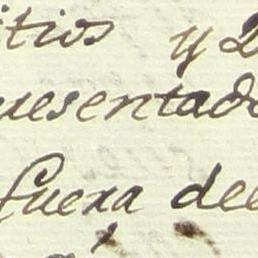 itios y 2
uesentado
fuera del